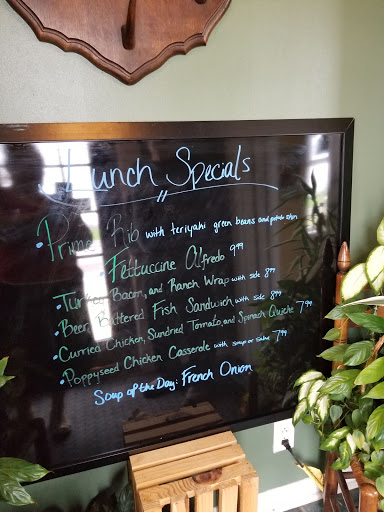 Lunch Specials
• Prime Rib with teriyaki green beans and potato
• Fettuccine Alfredo 9.99
• Turkey, Bacon, and Ranch Wrap with side 8.99
• Beer Battered Fish Sandwich with side 8.99
• Curried Chicken, Sundried Tomato, and Spinach Quiche 7.99
• Poppyseed Chicken Casserole with soup or salad 7.99
Soup of the Day: French Onion